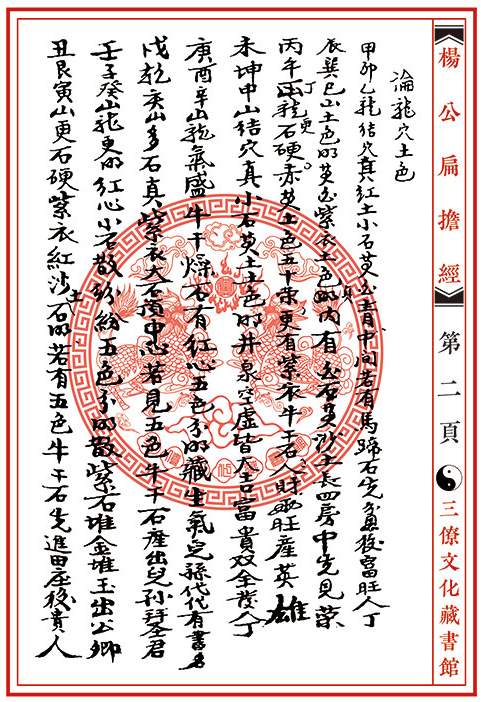 楊公扁擔經
第二頁
三僚文化藏書館
論龍穴土色
甲卯乙龍結穴真紅土小石黃白土肩中间若有馬蹄石先益後富旺人丁
辰巽巳山土色的黃白紫衣土色的內有白石黃沙土長四房中先見榮
丙午丁龍更石硬赤黃土色五十南更有紫衣牛士石人財兩旺產英雄
未坤申山結穴真小石黃土土色的井泉空虛皆大吉富貴双全发人丁
庚酉辛山龍氣盛牛干燥石有紅心五色分的藏生氣兒孫代代有書名
戌乾亥山多石真紫衣大石黃中心若見五色牛干石產出兒孫拜圣君
壬子癸山龍更的紅心小石散紛紛五色分的散紫石堆金堆玉出公卿
丑艮寅山更石硬紫衣紅沙土石的若有五色牛干石先進田庄後貴人